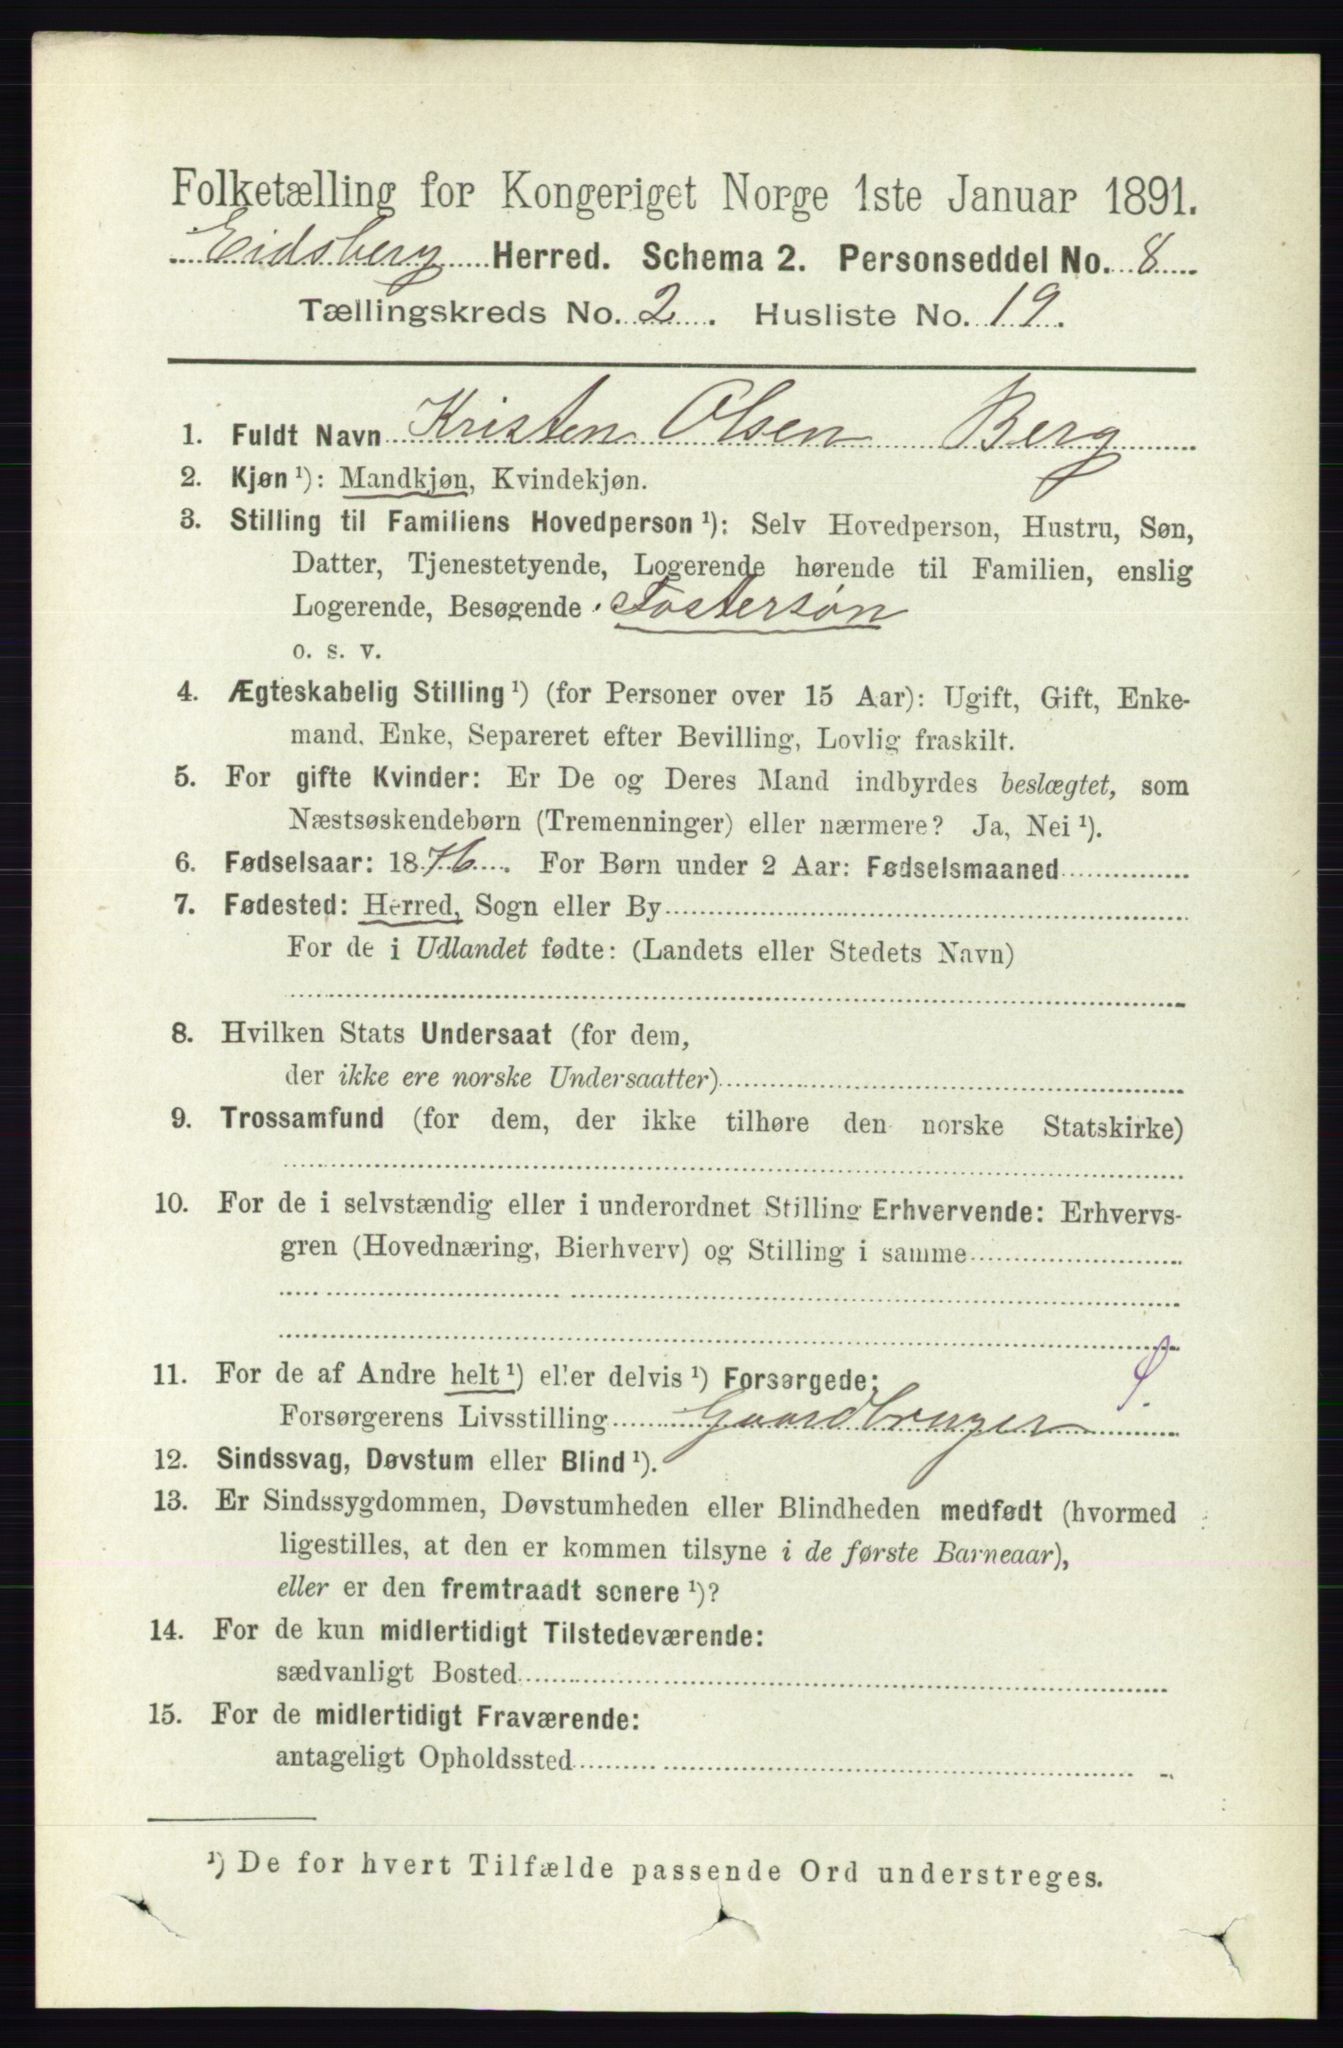 Folketælling for Kongeriget Norge 1ste Januar 1891.
Eidsberg Herred. Schema 2. Personseddel No. 8
Tællingskreds No. 2. Husliste No. 19.
1. Fuldt Navn Kristen Olsen Berg
2. Kjøn ¹): Mandkjøn, Kvindekjøn.
3. Stilling til Familiens Hovedperson ¹): Selv Hovedperson, Hustru, Søn,
Datter, Tjenestetyende, Logerende hørende til Familien, enslig
Logerende, Besøgende. Fostersøn
o. s. v.
4. Ægteskabelig Stilling ¹) (for Personer over 15 Aar): Ugift, Gift, Enke-
mand, Enke, Separeret efter Bevilling, Lovlig fraskilt.
5. For gifte Kvinder: Er De og Deres Mand indbyrdes beslægtet, som
Næstsøskendebørn (Tremenninger) eller nærmere? Ja, Nei ¹).
6. Fødselsaar: 1876. For Børn under 2 Aar: Fødselsmaaned
7. Fødested: Herred, Sogn eller By
For de i Udlandet fødte: (Landets eller Stedets Navn)
8. Hvilken Stats Undersaat (for dem,
der ikke ere norske Undersaatter)
9. Trossamfund (for dem, der ikke tilhøre den norske Statskirke)
10. For de i selvstændig eller i underordnet Stilling Erhvervende: Erhvervs-
gren (Hovednæring, Bierhverv) og Stilling i samme
11. For de af Andre helt ¹) eller delvis ¹) Forsørgede:
Forsørgerens Livsstilling Gaardbruger
12. Sindssvag, Døvstum eller Blind ¹).
13. Er Sindssygdommen, Døvstumheden eller Blindheden medfødt (hvormed
ligestilles, at den er kommen tilsyne i de første Barneaar),
eller er den fremtraadt senere ¹)?
14. For de kun midlertidigt Tilstedeværende:
sædvanligt Bosted
15. For de midlertidigt Fraværende:
antageligt Opholdssted
¹) De for hvert Tilfælde passende Ord understreges.